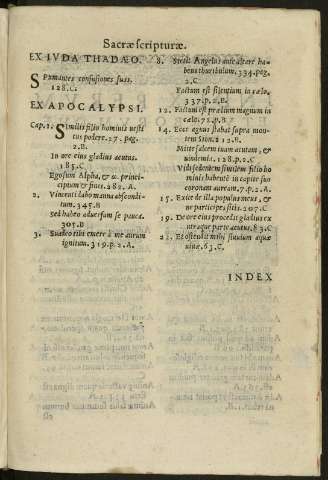 Sacræ scripturæ.
EX IVDA THADAEO.
SPumantes confusiones suas.
128.C.
EX APOCALYPSI.
Cap. 1. SImilem filio hominis vesti
tus podere. 27. pag.
2.B.
In ore eius gladius acutus.
185.C.
Ego sum Alpha, & ω. prin-
cipium & finis. 282. A.
2. Vincenti dabo manna abscondi-
tum. 345.B
Sed habeo aduersum te pauca.
305.B
3. Suadeo tibi emere à me aurum
ignitum. 319.p.2.A.
8. Stetit Angelus ante altare ha-
bens thuribulum. 334. pag.
2.C.
Factum est silentium in cælo.
337.p.2.B.
12. Factum est prælium magnum in
cælo. 72.p.B
14. Ecce agnus stabat supra mon-
tem Sion. 212.B.
Mitte falcem tuam acutam, &
vindemia. 128.p.2.C
Vidi sedentem similem filio ho
minis habentē in capite suo
coronam auream. 7.p.2.A.
15. Exite de illa populus meus, &
ne participes sitis. 207.C.
19. De ore eius procedit gladius ex
utraque parte acutus. 83.C
22. Et ostendit mihi fluuium aquæ
viuæ. 63.C.
INDEX